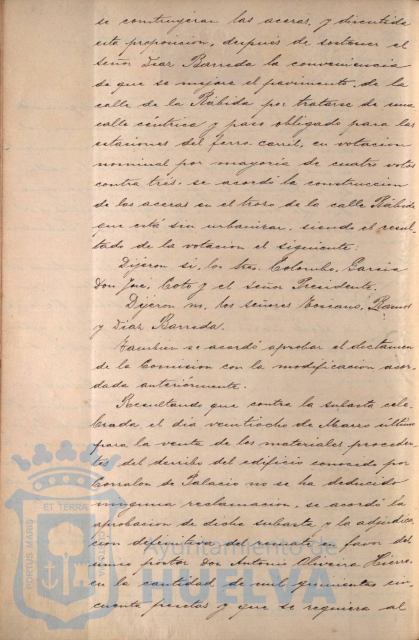 se construyeran las aceras, y discutida
esta proposicion, después de sostener el
Señor Diaz Barreda la conveniencia
de que se mejore el pavimento, de la
calle de la Rábida por tratarse de una
calle céntrica y paso obligado para las
estaciones del ferro carril, en votacion
nominal por mayoria de cuatro votos
contra tres, se acordó la construccion
de las aceras en el trozo de la calle Rábida
que está sin urbanizar, siendo el resul-
tado de la votacion el siguiente:
Dijeron si, los Sres. Colombo, Garcia
Don José, Coto y el Señor Presidente.
Dijeron no, los señores Toscano, Ramos
y Diaz Barreda.
Tambien se acordó aprobar el dictamen
de la Comision con la modificacion acor-
dada anteriormente.
Resultando que contra la subasta cele-
brada, el dia veintiocho de Marzo último
para la venta de los materiales proceden-
tes del derribo del edificio conocido por
Corralon de Palacio no se ha deducido
ninguna reclamacion, se acordó la
aprobacion de dicha subasta y la adjudica-
cion definitiva del remate a favor del
único postor don Antonio Oliveira Hierro
en la cantidad de mil quinientas cin-
cuenta pesetas y que se requiera al
Ayuntamiento de
HUELVA
PORTUS MARIS
ET TERRÆ
CUSTODIA